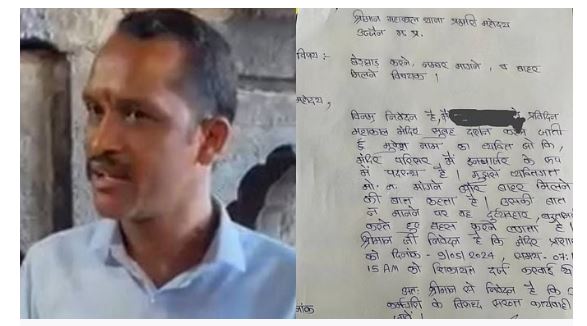 श्रीमान महाकाल थाना प्रभारी महोदय
उज्जैन म.प्र.
विषय :- छेड़छाड़ करने, नम्बर मांगने, व बाहर
मिलने विषयक ।
महोदय,
विनम्र निवेदन है, मैं प्रतिदिन
महाकाल मंदिर सुबह दर्शन करने जाती
हूं मुकेश नाम का व्यक्ति जो कि,
मंदिर परिसर में इन्चार्ज के रूप
में पदस्थ है । मुझसे व्यक्तिगत
मो. न. मांगने और बाहर मिलने
की बात कहता है । उसकी बात
न मानने पर वह दुर्व्यवहार,
करते हुए बहस करने लगता है ।
श्रीमान जी निवेदन है कि मंदिर
को दिनांक - 9/05/2024, समय - 07:
15 AM को शिकायत दर्ज करवाई
अतः श्रीमान से निवेदन है कि
कर्मचारी के विरुद्ध सख्त कार्यवाही